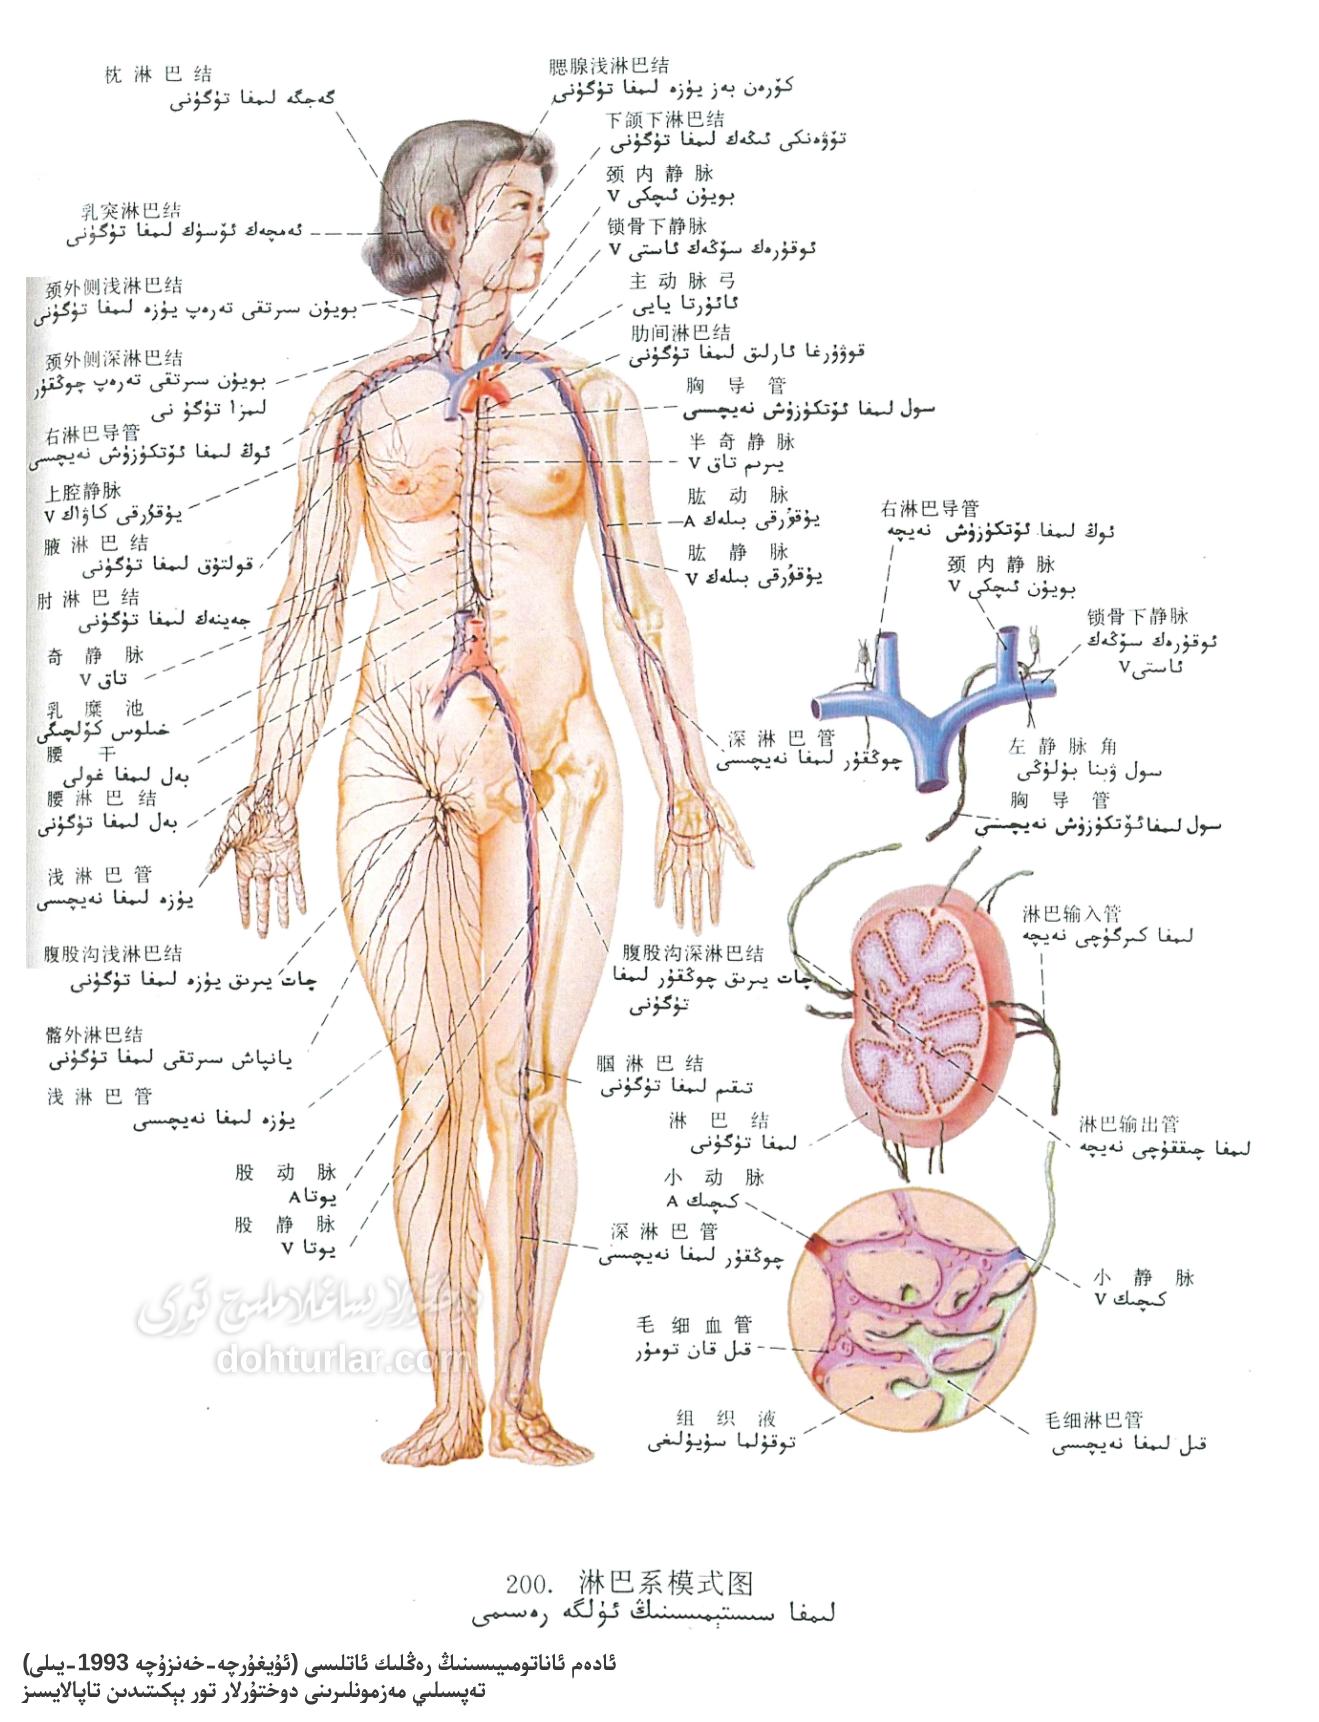 枕淋巴结
گەجگە لىمفا تۈگۈنى
乳突淋巴结
ئەمچەك ئۆسۈك لىمفا تۈگۈنى
颈外侧浅淋巴结
بويۇن سىرتقى تەرەپ يۈزە لىمفا تۈگۈنى
颈外侧深淋巴结
بويۇن سىرتقى تەرەپ چوڭقۇر
لىمزا تۈگۈ نى
右淋巴导管
ئوڭ لىمفا ئۆتكۈزۈش نەيچىسى
上腔静脉
يۇقۇرقى كاۋاك V
腋淋巴结
قولتۇق لىمفا تۈگۈنى
肘淋巴结
جەينەك لىمفا تۈگۈنى
奇静脉
تاق V
乳糜池
خىلوس كۆلچىگى
腰干
بەل لىمفا غولى
腰淋巴结
بەل لىمفا تۈگۈنى
浅淋巴管
يۈزە لىمفا نەيچىسى
腹股沟浅淋巴结
چات يىرىق يۈزە لىمفا تۈگۈنى
髂外淋巴结
يانپاش سىرتقى لىمفا تۈگۈنى
浅淋巴管
يۈزە لىمفا نەيچىسى
股动脉
يوتا A
股静脉
يوتا V
腮腺浅淋巴结
كۆرەن بەز يۈزە لىمفا تۈگۈنى
下颌下淋巴结
تۆۋەنكى ئىڭەك لىمفا تۈگۈنى
颈内静脉
بويۇن ئىچكى V
锁骨下静脉
ئوقۇرەك سۆڭەك ئاستى V
主动脉弓
ئائۇرتا يايى
肋间淋巴结
قوۋۇرغا ئارلىق لىمفا تۈگۈنى
胸导管
سول لىمفا ئۆتكۈزۈش نەيچىسى
半奇静脉
يىرىم تاق V
肱动脉
يۇقۇرقى بىلەك A
肱静脉
يۇقۇرقى بىلەك V
深淋巴管
چوڭقۇر لىمفا نەيچىسى
腹股沟深淋巴结
چات يىرىق چوڭقۇر لىمفا
تۈگۈنى
腘淋巴结
تىقىم لىمفا تۈگۈنى
淋巴结
لىمفا تۈگۈنى
小动脉
كىچىك A
深淋巴管
چوڭقۇر لىمفا نەيچىسى
毛细血管
قىل قان تومۇر
组织液
توقۇلما سۇيۇلىغى
右淋巴导管
ئوڭ لىمفا ئۆتكۈزۈش نەيچە
颈内静脉
بويۇن ئىچكى V
锁骨下静脉
ئوقۇرەك سۆڭەك
ئاستى V
左静脉角
سول ۋىنا بۇلۇڭى
胸导管
سول لىمفا ئۆتكۈزۈش نەيچىسى
淋巴输入管
لىمفا كىرگۈچى نەيچە
淋巴输出管
لىمفا چىققۇچى نەيچە
小静脉
كىچىك V
毛细淋巴管
قىل لىمفا نەيچىسى
دوختۇرلار ساغلاملىق تورى
dohturlar.com
200. 淋巴系模式图
لىمفا سىستېمىسىنىڭ ئۈلگە رەسىمى
ئادەم ئاناتومىيىسىنىڭ رەڭلىك ئاتلىسى (ئۇيغۇرچە-خەنزۇچە 1993-يىلى)
تەپسىلىي مەزمونلىرىنى دوختۇرلار تور بېكىتىدىن تاپالايسىز